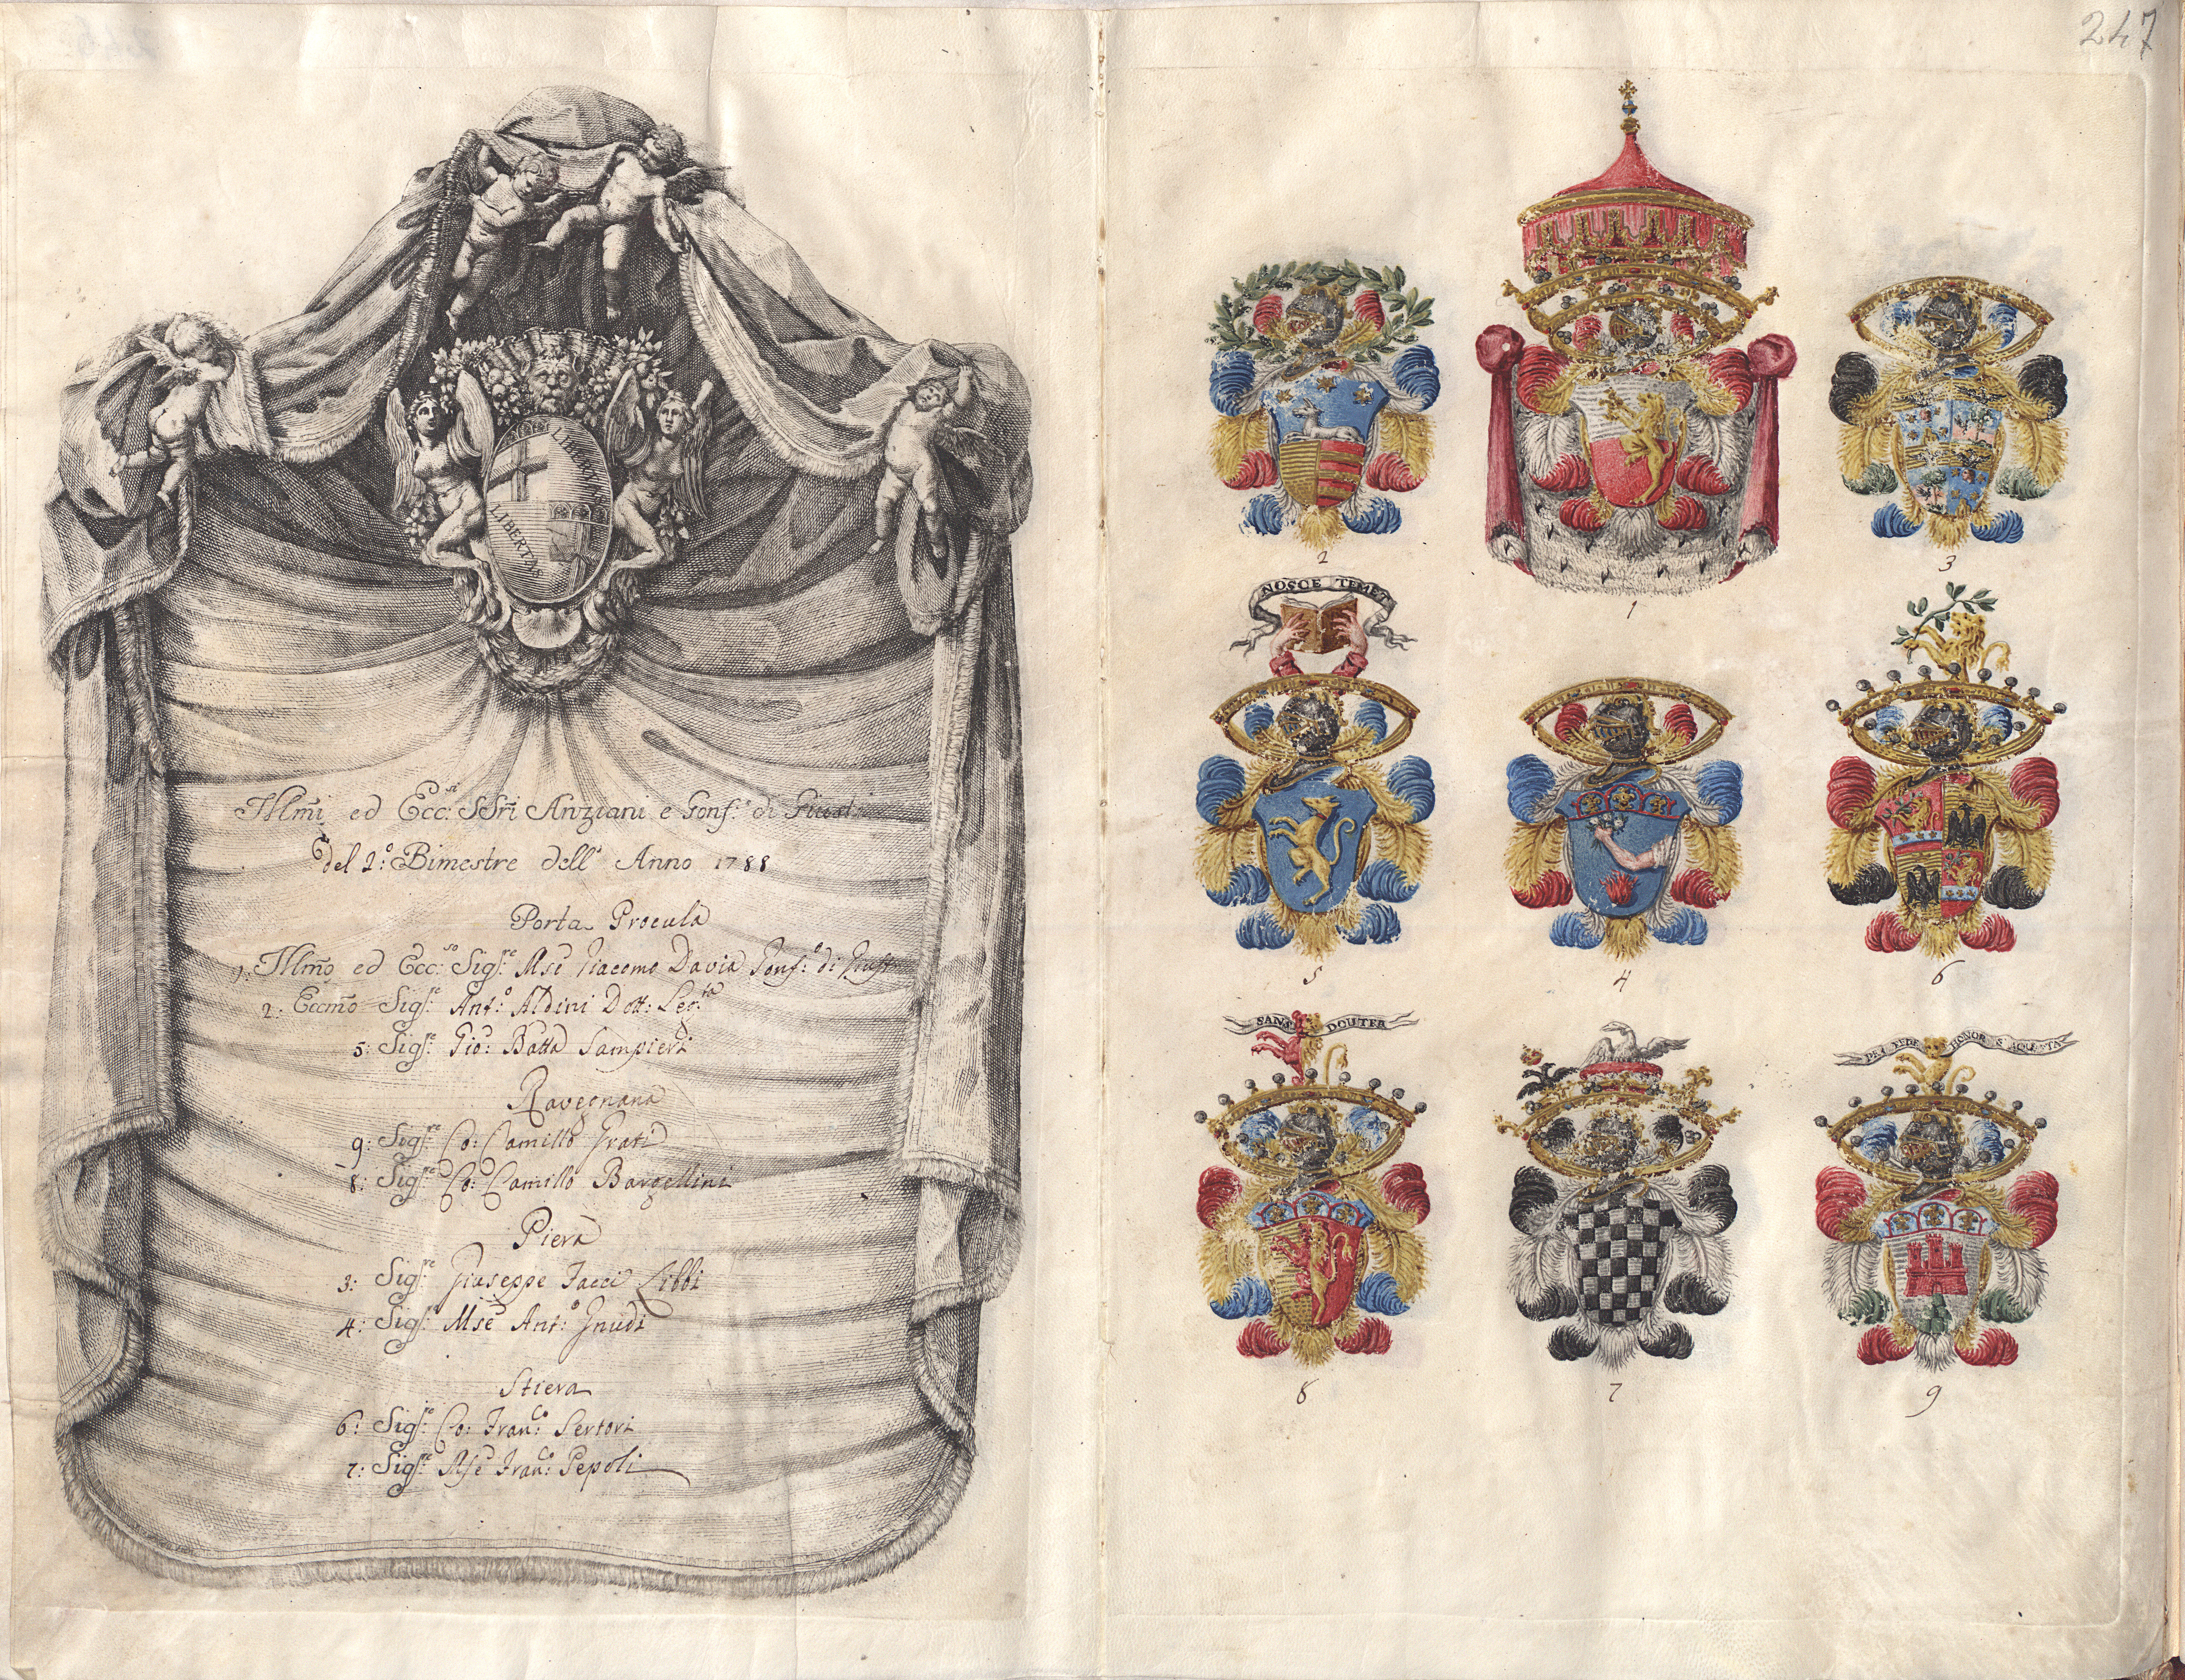 247
LIBERTAS
LIBERTAS
Illm̃i ed Ecc:si SSri Anziani e Gonf:e di Giust:
del 2:o Bimestre dell' Anno 1788
Porta Procula
1: Illm̃o ed Ecc:so Sig:re Mse Giacomo Davia Gonf:e di Giust
2: Eccm̃o Sig:re Ant:o Aldini Dott: Leg:ta
5: Sig:re Gio: Batta Sampieri
Ravegnana
9: Sig:re Co: Camillo Grati
8: Sig:re Co: Camillo Bargellini
Piera
3: Sig:re Giuseppe Jacci Libbi
4: Sig:re Mse Ant:o Gnudi
Stiera
6: Sig:re Co: Fran:co Sertori
7: Sig:re Mse Fran:co Pepoli
2
1
3
NOSCE TEMET
5
4
6
SANS DOUTER
PER FEDE HONOR S'AQUISTA
8
7
9